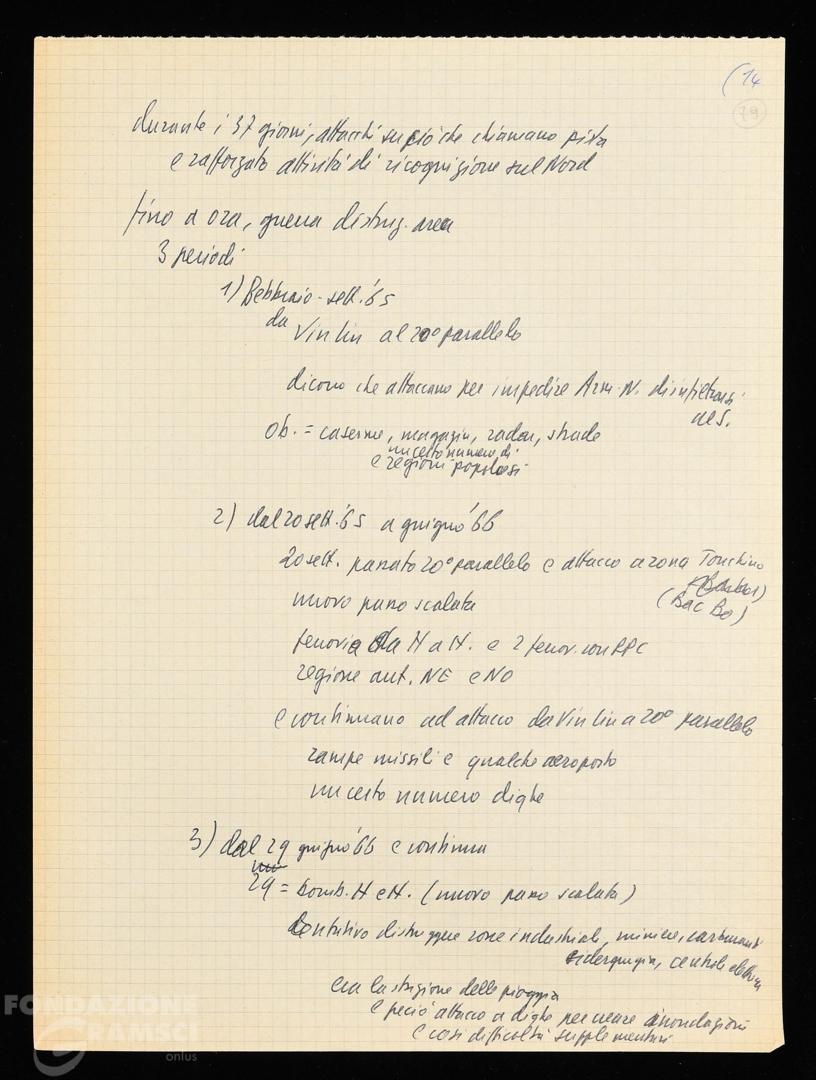 (14
79
durante i 37 giorni, attacchi su ciò che chiamano pista
e rafforzato attività di ricognizione sul Nord
fino a ora, guerra distrug. area
3 periodi
1) Febbraio - sett. '65
da Vin Lin al 20° parallelo
dicono che attaccano per impedire Arm. N. di infiltrarsi
al S.
Ob. = caserme, magazin, radar, strade
un certo numero di
e regioni popolose
2) dal 20 sett. '65 a giugno '66
20 sett. passato 20° parallelo e attacco a zona Tonchino
(Bac Bo)
nuovo passo scalata
ferrovia da H a H. e 2 ferrov. con RPC
regione aut. NE e NO
e continuano ad attacco da Vin Lin a 20° parallelo
rampe missili e qualche aeroporto
un certo numero dighe
3) dal 29 giugno '66 e continua
29 = bomb. H e H. (nuovo passo scalata)
tentativo distruggere zone industriali, miniere, carburanti
siderurgia, centrali elettrica
era la stagione delle pioggia
e perciò attacco a dighe per creare inondazioni
e così difficoltà supplementari
FONDAZIONE
GRAMSCI
onlus